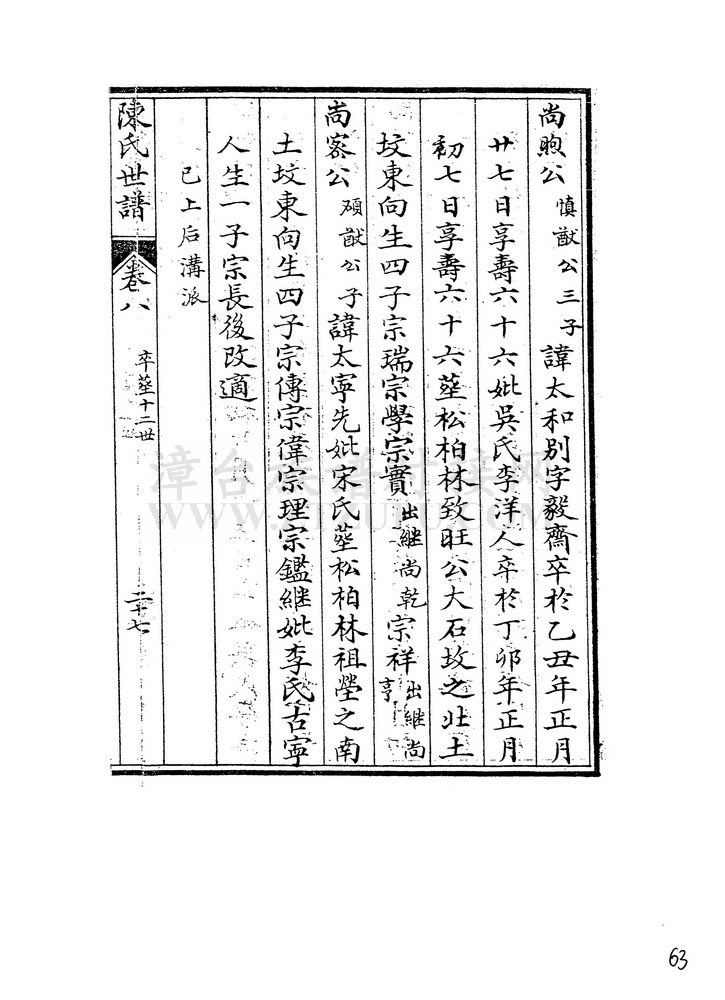 尚煦公 慎猷公三子 諱太和别字毅齋卒於乙丑年正月
廿七日享壽六十六妣吳氏李洋人卒於丁卯年正月
初七日享壽六十六塟松柏林致旺公大石坟之北土
坟東向生四子宗瑞宗學宗實 出継尚乾 宗祥 出継尚亨
尚密公 碩猷公子 諱太寧先妣宋氏塟松柏林祖塋之南
土坟東向生四子宗傳宗偉宗理宗鑑継妣李氏古寧
人生一子宗長後改適
已上后溝派
陳氏世譜 卷八 卒塟十二世 二十七
漳台族谱对接网
WWW.ZTZUPU.COM
63